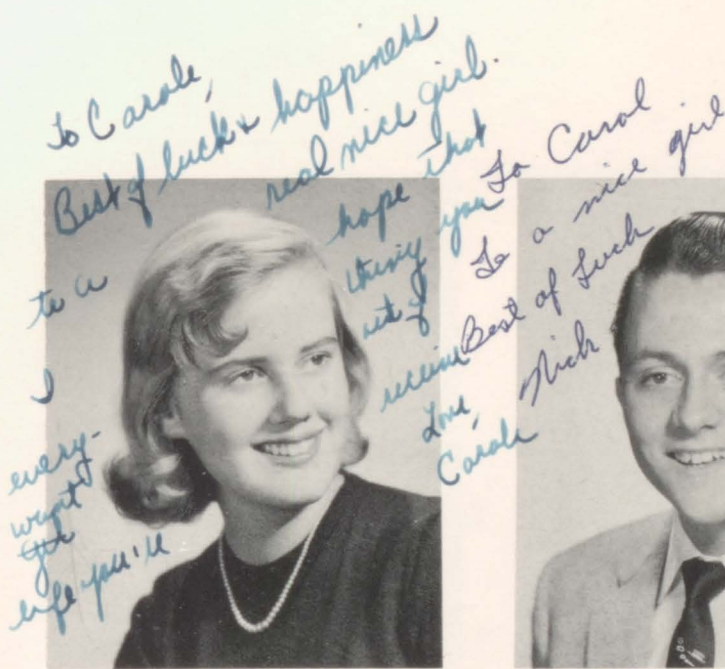 To Carole,
Best of luck & happiness
to a real nice girl.
I hope that
every-thing you
want out of
life you'll receive
Love,
Carole
To Carol
To a nice girl
Best of Luck
Nick